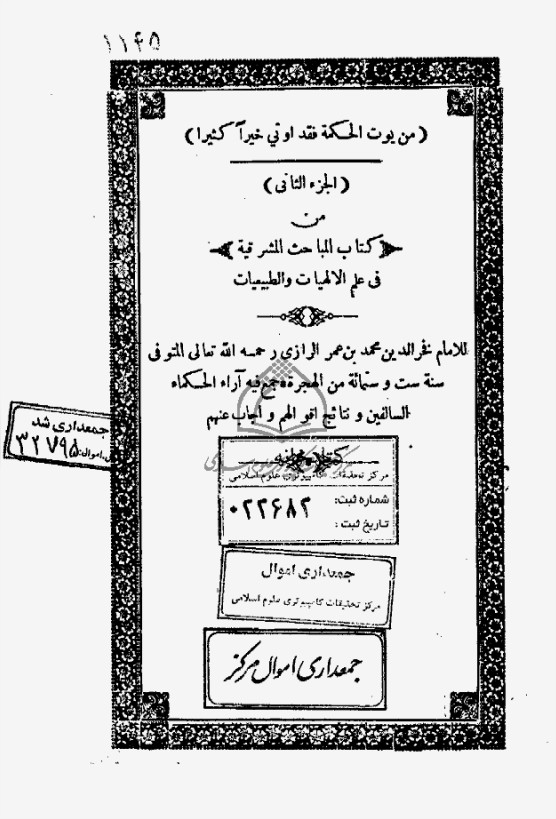 ١١٤٥
(من يوت الحكمة فقد اوتي خيرآ كثيرا)
(الجزء الثانى)
من
كتاب المباحث المشرقية
فى علم الالهيات والطبيعيات
للامام فخر الدين محمد بن عمر الرازى رحمه الله تعالى المتوفى
سنة ست و ستمائة من الهجرة جمع فيه آراء الحكماء
السالفين و نتائج اقوالهم و اجاب عنهم
جمعداری شد
اموال: ۳۲۷۹۵
کتابخانه
مرکز تحقیقات کامپیوتری علوم اسلامی
شماره ثبت: ۰۲۲۶۸۲
تاریخ ثبت:
جمعداری اموال
مرکز تحقیقات کامپیوتری علوم اسلامی
جمعداری اموال مرکز